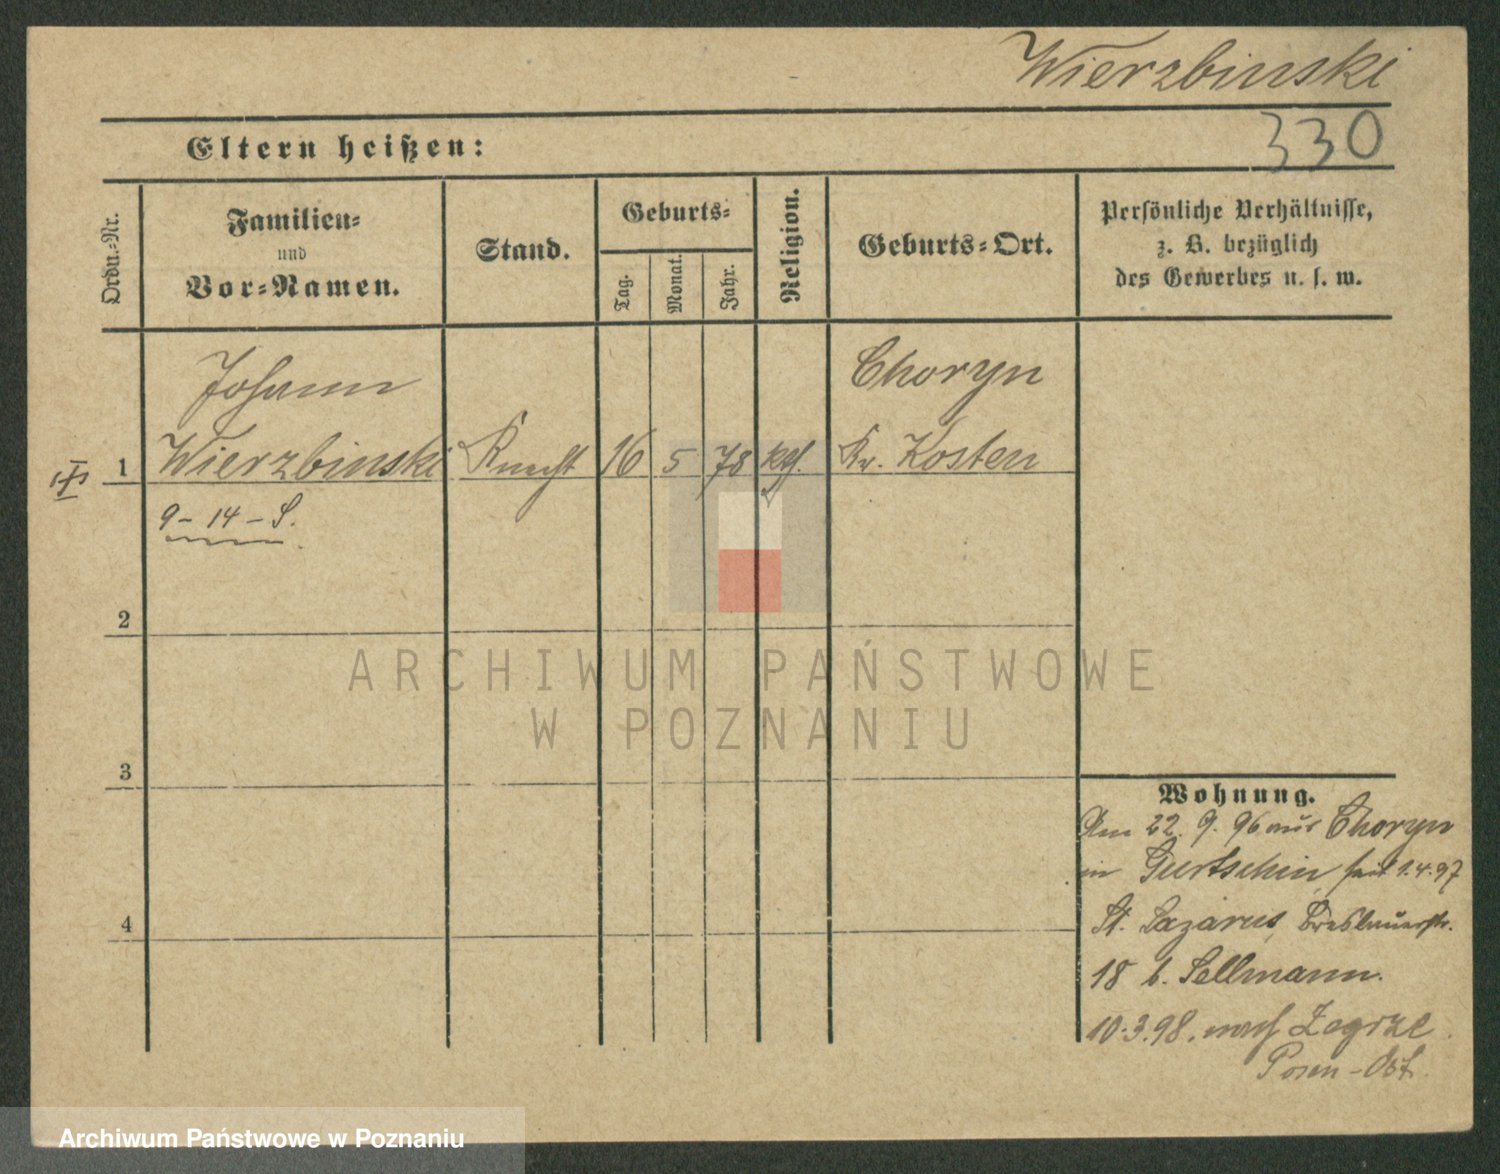 Wierzbinski
330
Eltern heißen:
Ordn.-Nr.
Familien-
und
Vor-Namen.
Stand.
Geburts-
Tag.
Monat.
Jahr.
Religion.
Geburts-Ort.
Persönliche Verhältnisse,
z. B. bezüglich
des Gewerbes u. s. w.
Johann
Choryn
1 Wierzbinski Knecht 16 5 78 kth. Kr. Kosten
9 - 14 - S.
2
3
4
Wohnung.
Am 22. 9. 96 aus Choryn
in Gurtschin seit 1.4.97
St. Lazarus, Breslauerstr.
18 b. Sellmann.
10.3.98. nach Zegrze
Posen-Ost.
ARCHIWUM PAŃSTWOWE
W POZNANIU
Archiwum Państwowe w Poznaniu